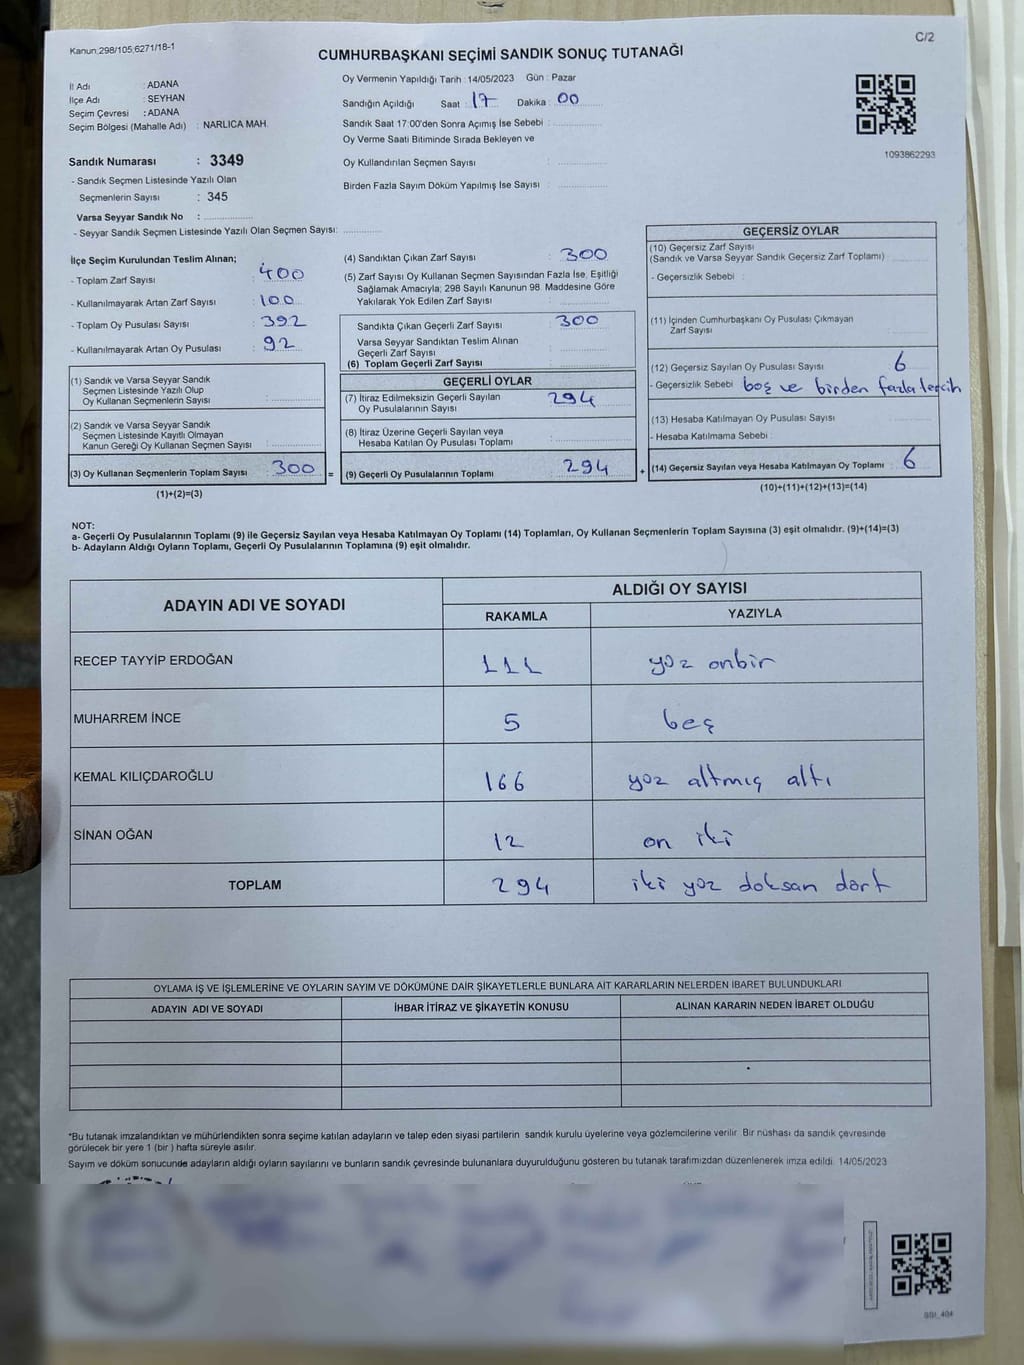 Kanun.298/105,6271/18-1
C/2
CUMHURBAŞKANI SEÇİMİ SANDIK SONUÇ TUTANAĞI
İl Adı : ADANA
İlçe Adı : SEYHAN
Seçim Çevresi : ADANA
Seçim Bölgesi (Mahalle Adı) : NARLICA MAH.
Sandık Numarası : 3349
- Sandık Seçmen Listesinde Yazılı Olan
Seçmenlerin Sayısı : 345
Varsa Seyyar Sandık No :
- Seyyar Sandık Seçmen Listesinde Yazılı Olan Seçmen Sayısı:
Oy Vermenin Yapıldığı Tarih : 14/05/2023 Gün : Pazar
Sandığın Açıldığı Saat : 17 Dakika : 00
Sandık Saat 17:00'den Sonra Açımış İse Sebebi :
Oy Verme Saati Bitiminde Sırada Bekleyen ve
Oy Kullandırılan Seçmen Sayısı :
Birden Fazla Sayım Döküm Yapılmış İse Sayısı :
1093862293
İlçe Seçim Kurulundan Teslim Alınan;
- Toplam Zarf Sayısı : 400
- Kullanılmayarak Artan Zarf Sayısı : 100
- Toplam Oy Pusulası Sayısı : 392
- Kullanılmayarak Artan Oy Pusulası : 92
(1) Sandık ve Varsa Seyyar Sandık
Seçmen Listesinde Yazılı Olup
Oy Kullanan Seçmenlerin Sayısı :
(2) Sandık ve Varsa Seyyar Sandık
Seçmen Listesinde Kayıtlı Olmayan
Kanun Gereği Oy Kullanan Seçmen Sayısı :
(3) Oy Kullanan Seçmenlerin Toplam Sayısı : 300 =
(1)+(2)=(3)
(4) Sandıktan Çıkan Zarf Sayısı : 300
(5) Zarf Sayısı Oy Kullanan Seçmen Sayısından Fazla İse, Eşitliği
Sağlamak Amacıyla; 298 Sayılı Kanunun 98. Maddesine Göre
Yakılarak Yok Edilen Zarf Sayısı :
Sandıkta Çıkan Geçerli Zarf Sayısı : 300
Varsa Seyyar Sandıktan Teslim Alınan
Geçerli Zarf Sayısı :
(6) Toplam Geçerli Zarf Sayısı :
GEÇERLİ OYLAR
(7) İtiraz Edilmeksizin Geçerli Sayılan
Oy Pusulalarının Sayısı : 294
(8) İtiraz Üzerine Geçerli Sayılan veya
Hesaba Katılan Oy Pusulası Toplamı :
(9) Geçerli Oy Pusulalarının Toplamı : 294 +
GEÇERSİZ OYLAR
(10) Geçersiz Zarf Sayısı
(Sandık ve Varsa Seyyar Sandık Geçersiz Zarf Toplamı) :
- Geçersizlik Sebebi :
(11) İçinden Cumhurbaşkanı Oy Pusulası Çıkmayan
Zarf Sayısı :
(12) Geçersiz Sayılan Oy Pusulası Sayısı : 6
- Geçersizlik Sebebi : boş ve birden fazla tercih
(13) Hesaba Katılmayan Oy Pusulası Sayısı :
- Hesaba Katılmama Sebebi :
(14) Geçersiz Sayılan veya Hesaba Katılmayan Oy Toplamı : 6
(10)+(11)+(12)+(13)=(14)
NOT:
a- Geçerli Oy Pusulalarının Toplamı (9) ile Geçersiz Sayılan veya Hesaba Katılmayan Oy Toplamı (14) Toplamları, Oy Kullanan Seçmenlerin Toplam Sayısına (3) eşit olmalıdır. (9)+(14)=(3)
b- Adayların Aldığı Oyların Toplamı, Geçerli Oy Pusulalarının Toplamına (9) eşit olmalıdır.
ADAYIN ADI VE SOYADI
ALDIĞI OY SAYISI
RAKAMLA YAZIYLA
RECEP TAYYİP ERDOĞAN 111 yüz onbir
MUHARREM İNCE 5 beş
KEMAL KILIÇDAROĞLU 166 yüz altmış altı
SİNAN OĞAN 12 on iki
TOPLAM 294 iki yüz doksan dört
OYLAMA İŞ VE İŞLEMLERİNE VE OYLARIN SAYIM VE DÖKÜMÜNE DAİR ŞİKAYETLERLE BUNLARA AİT KARARLARIN NELERDEN İBARET BULUNDUKLARI
ADAYIN ADI VE SOYADI İHBAR İTİRAZ VE ŞİKAYETİN KONUSU ALINAN KARARIN NEDEN İBARET OLDUĞU
*Bu tutanak imzalandıktan ve mühürlendikten sonra seçime katılan adayların ve talep eden siyasi partilerin sandık kurulu üyelerine veya gözlemcilerine verilir. Bir nüshası da sandık çevresinde
görülecek bir yere 1 (bir ) hafta süreyle asılır.
Sayım ve döküm sonucunda adayların aldığı oyların sayılarını ve bunların sandık çevresinde bulunanlara duyurulduğunu gösteren bu tutanak tarafımızdan düzenlenerek imza edildi. 14/05/2023